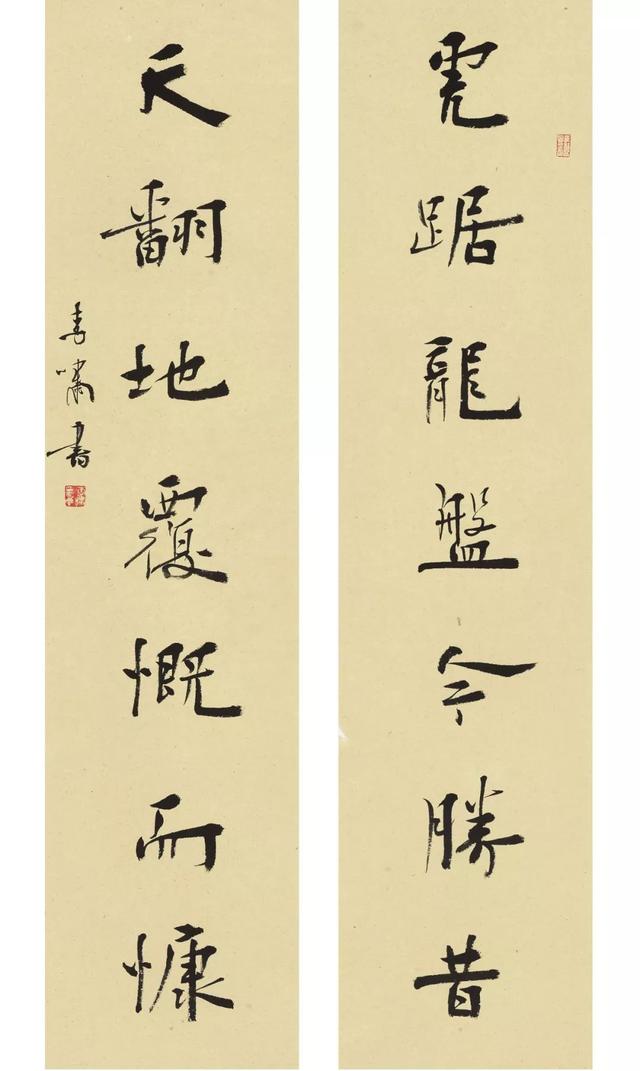 虎踞龍盤今勝昔
天翻地覆慨而慷
青嘯書